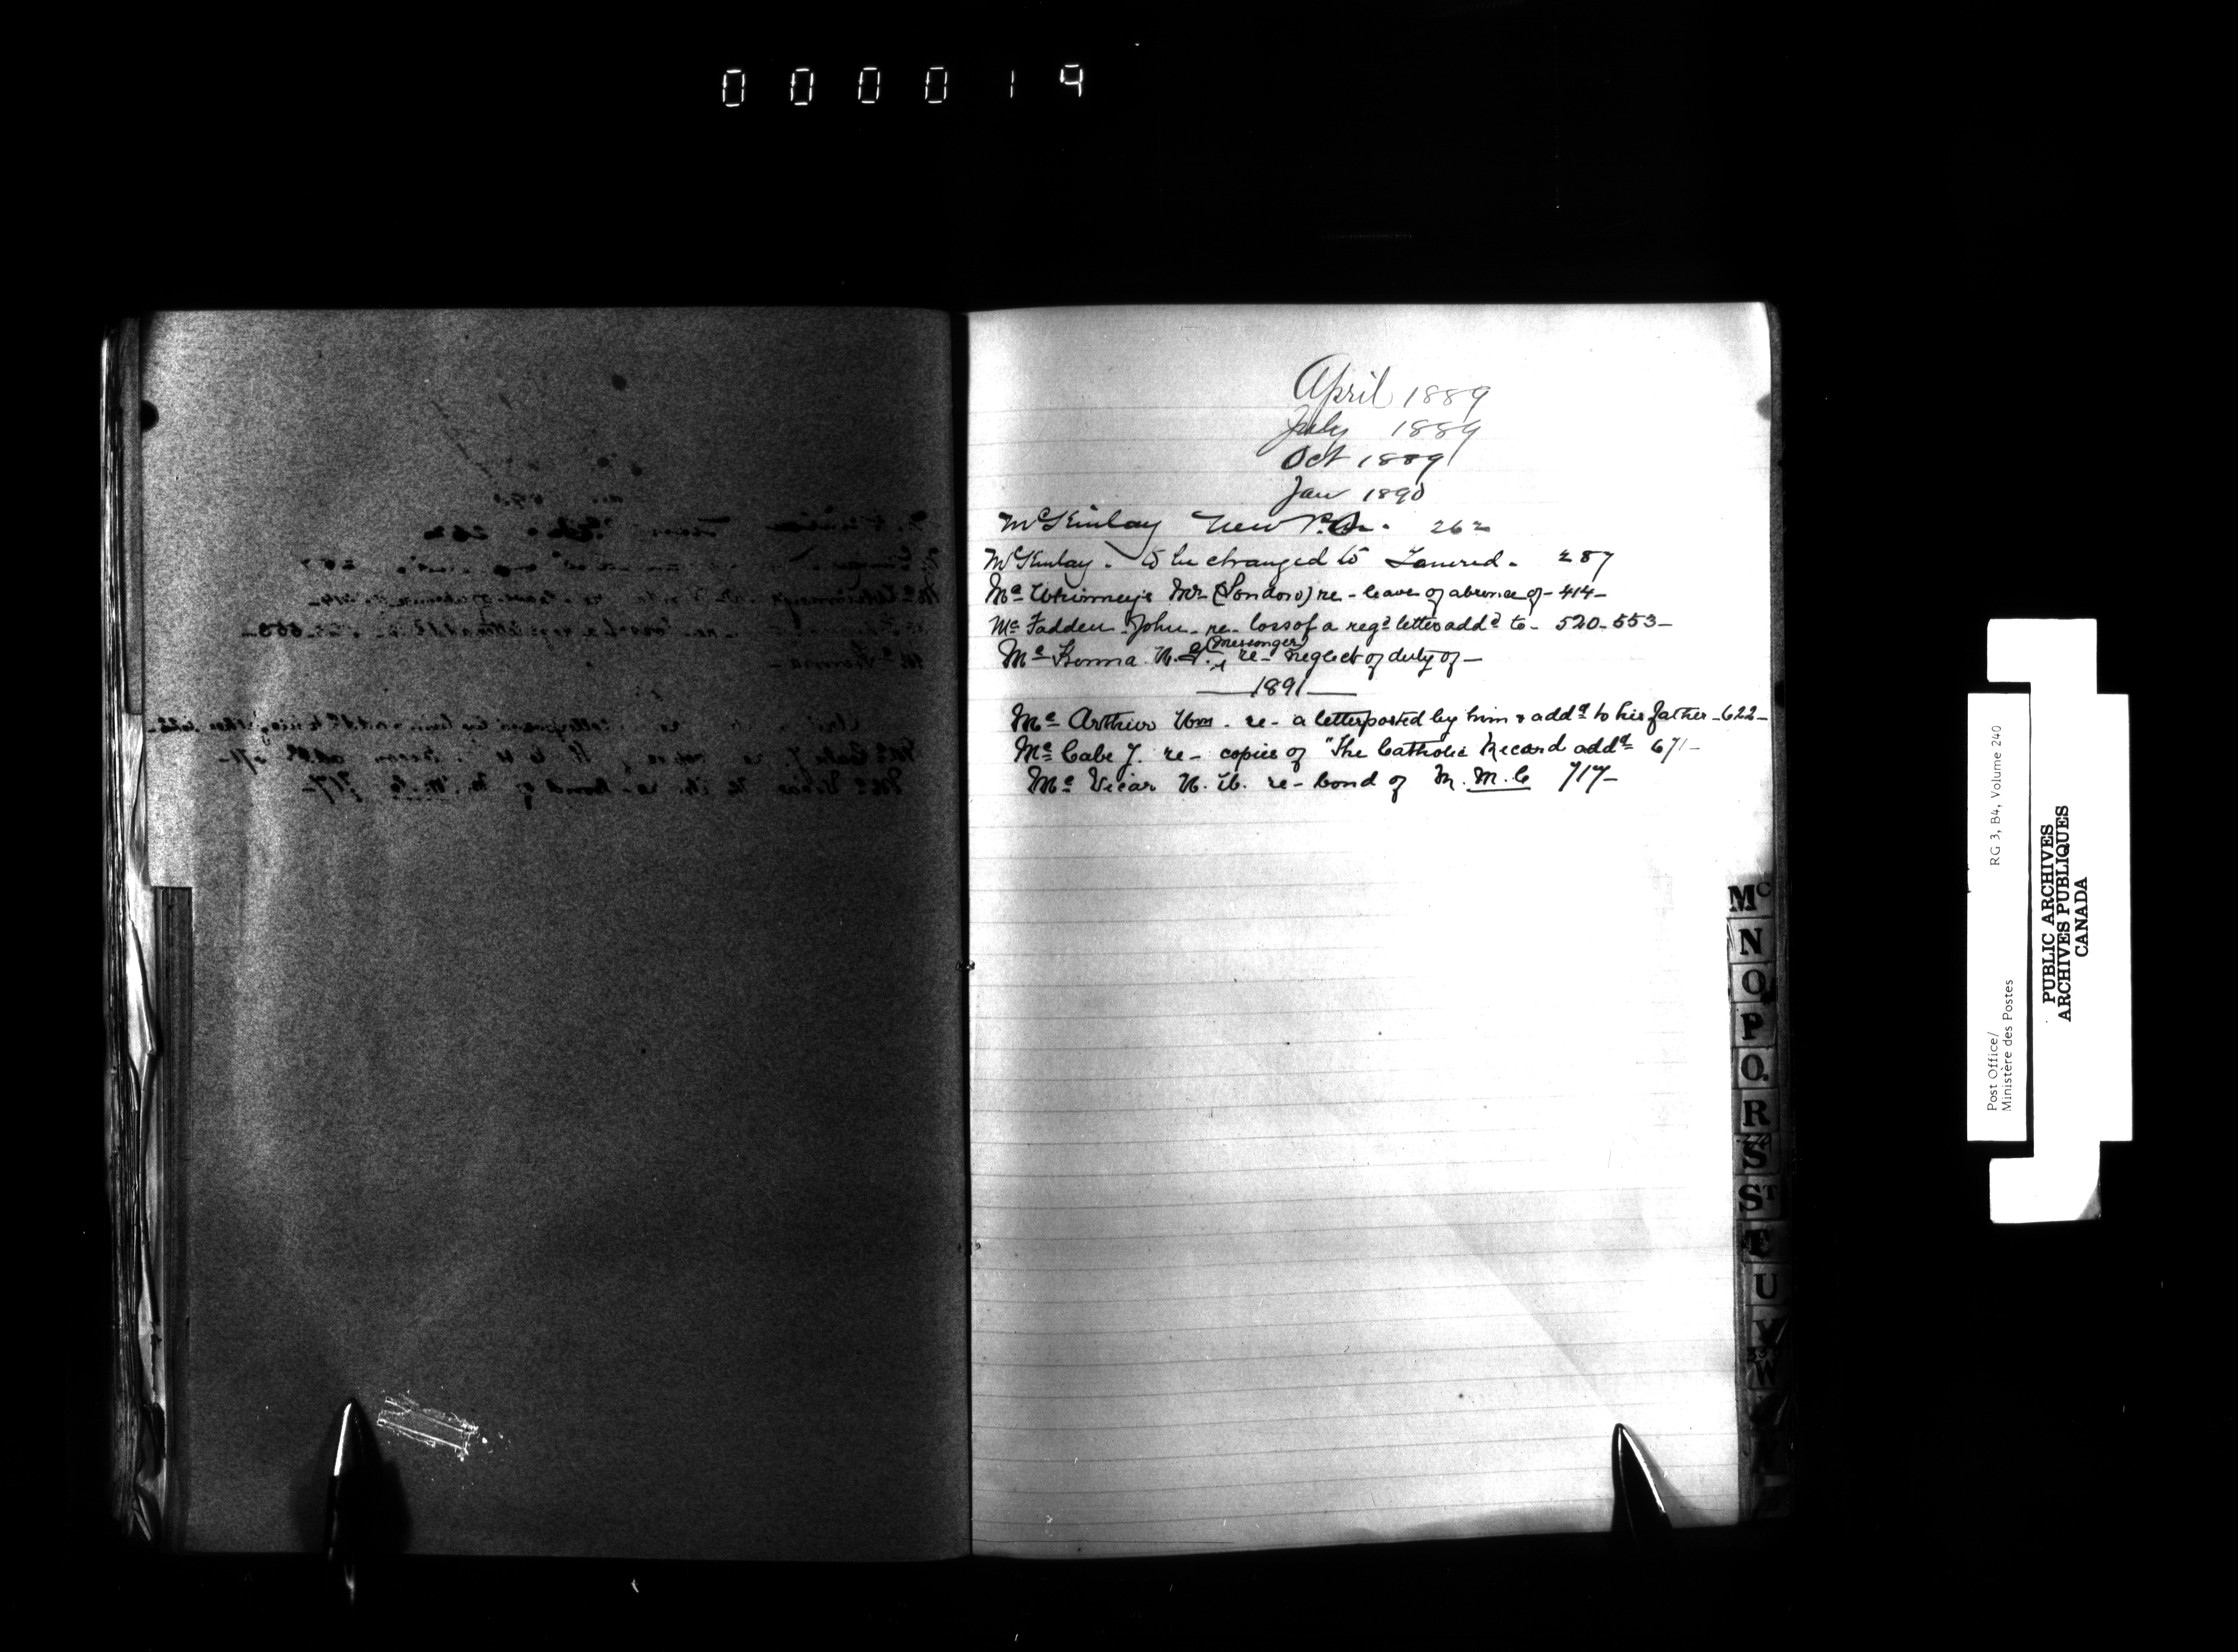 000019
April 1889
July 1889
Oct 1889
Jan 1890
McKinlay New P.O. 262
McKinlay. to be changed to 287
Mc Whinneys Mr (London) re - leave of absence of - 414 -
Mc Fadden John - re - loss of a regd letter addd to - 520 - 553 -
(Messenger)
Mc Kenna re - neglect of duty of -
1891
Mc Arthur Wm. re - a letter posted by him & addd to his father - 622 -
Mc Cabe J. re - copies of "The Catholic Record addd 671 -
Mc Vicar re - bond of M. M. C 717 -
Mc
N
O
P
Q
R
S
ST
U
V
W
Post Office/
Ministère des Postes
RG 3, B4, Volume 240
PUBLIC ARCHIVES
ARCHIVES PUBLIQUES
CANADA